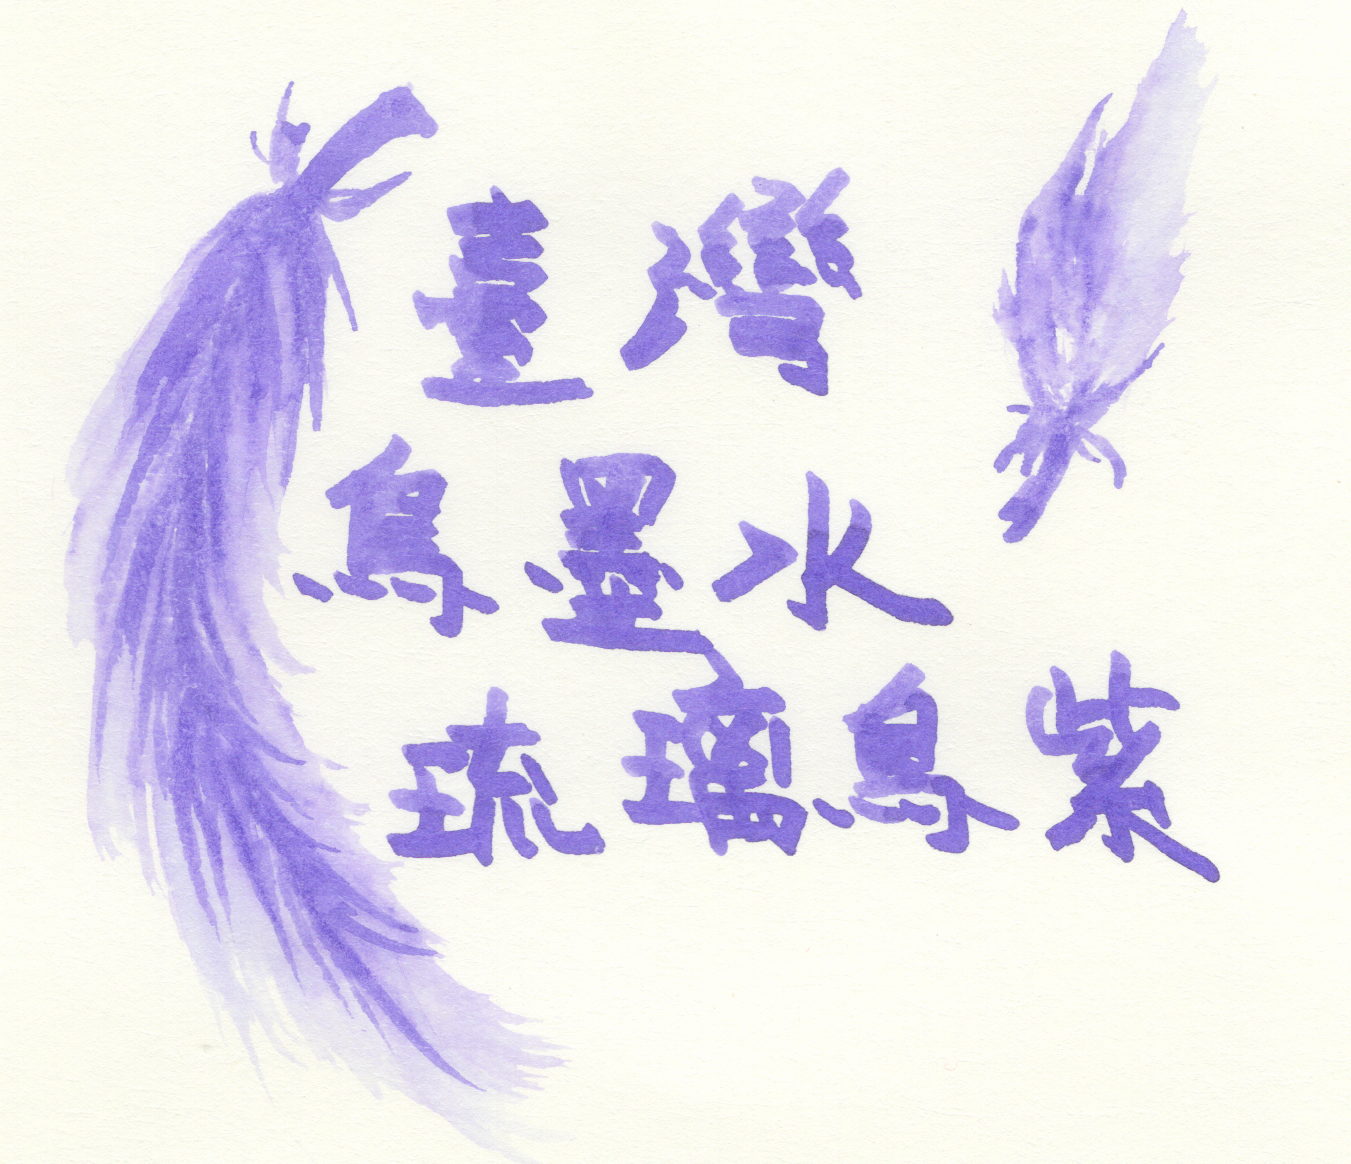 臺灣
鳥墨水
琉璃鳥紫